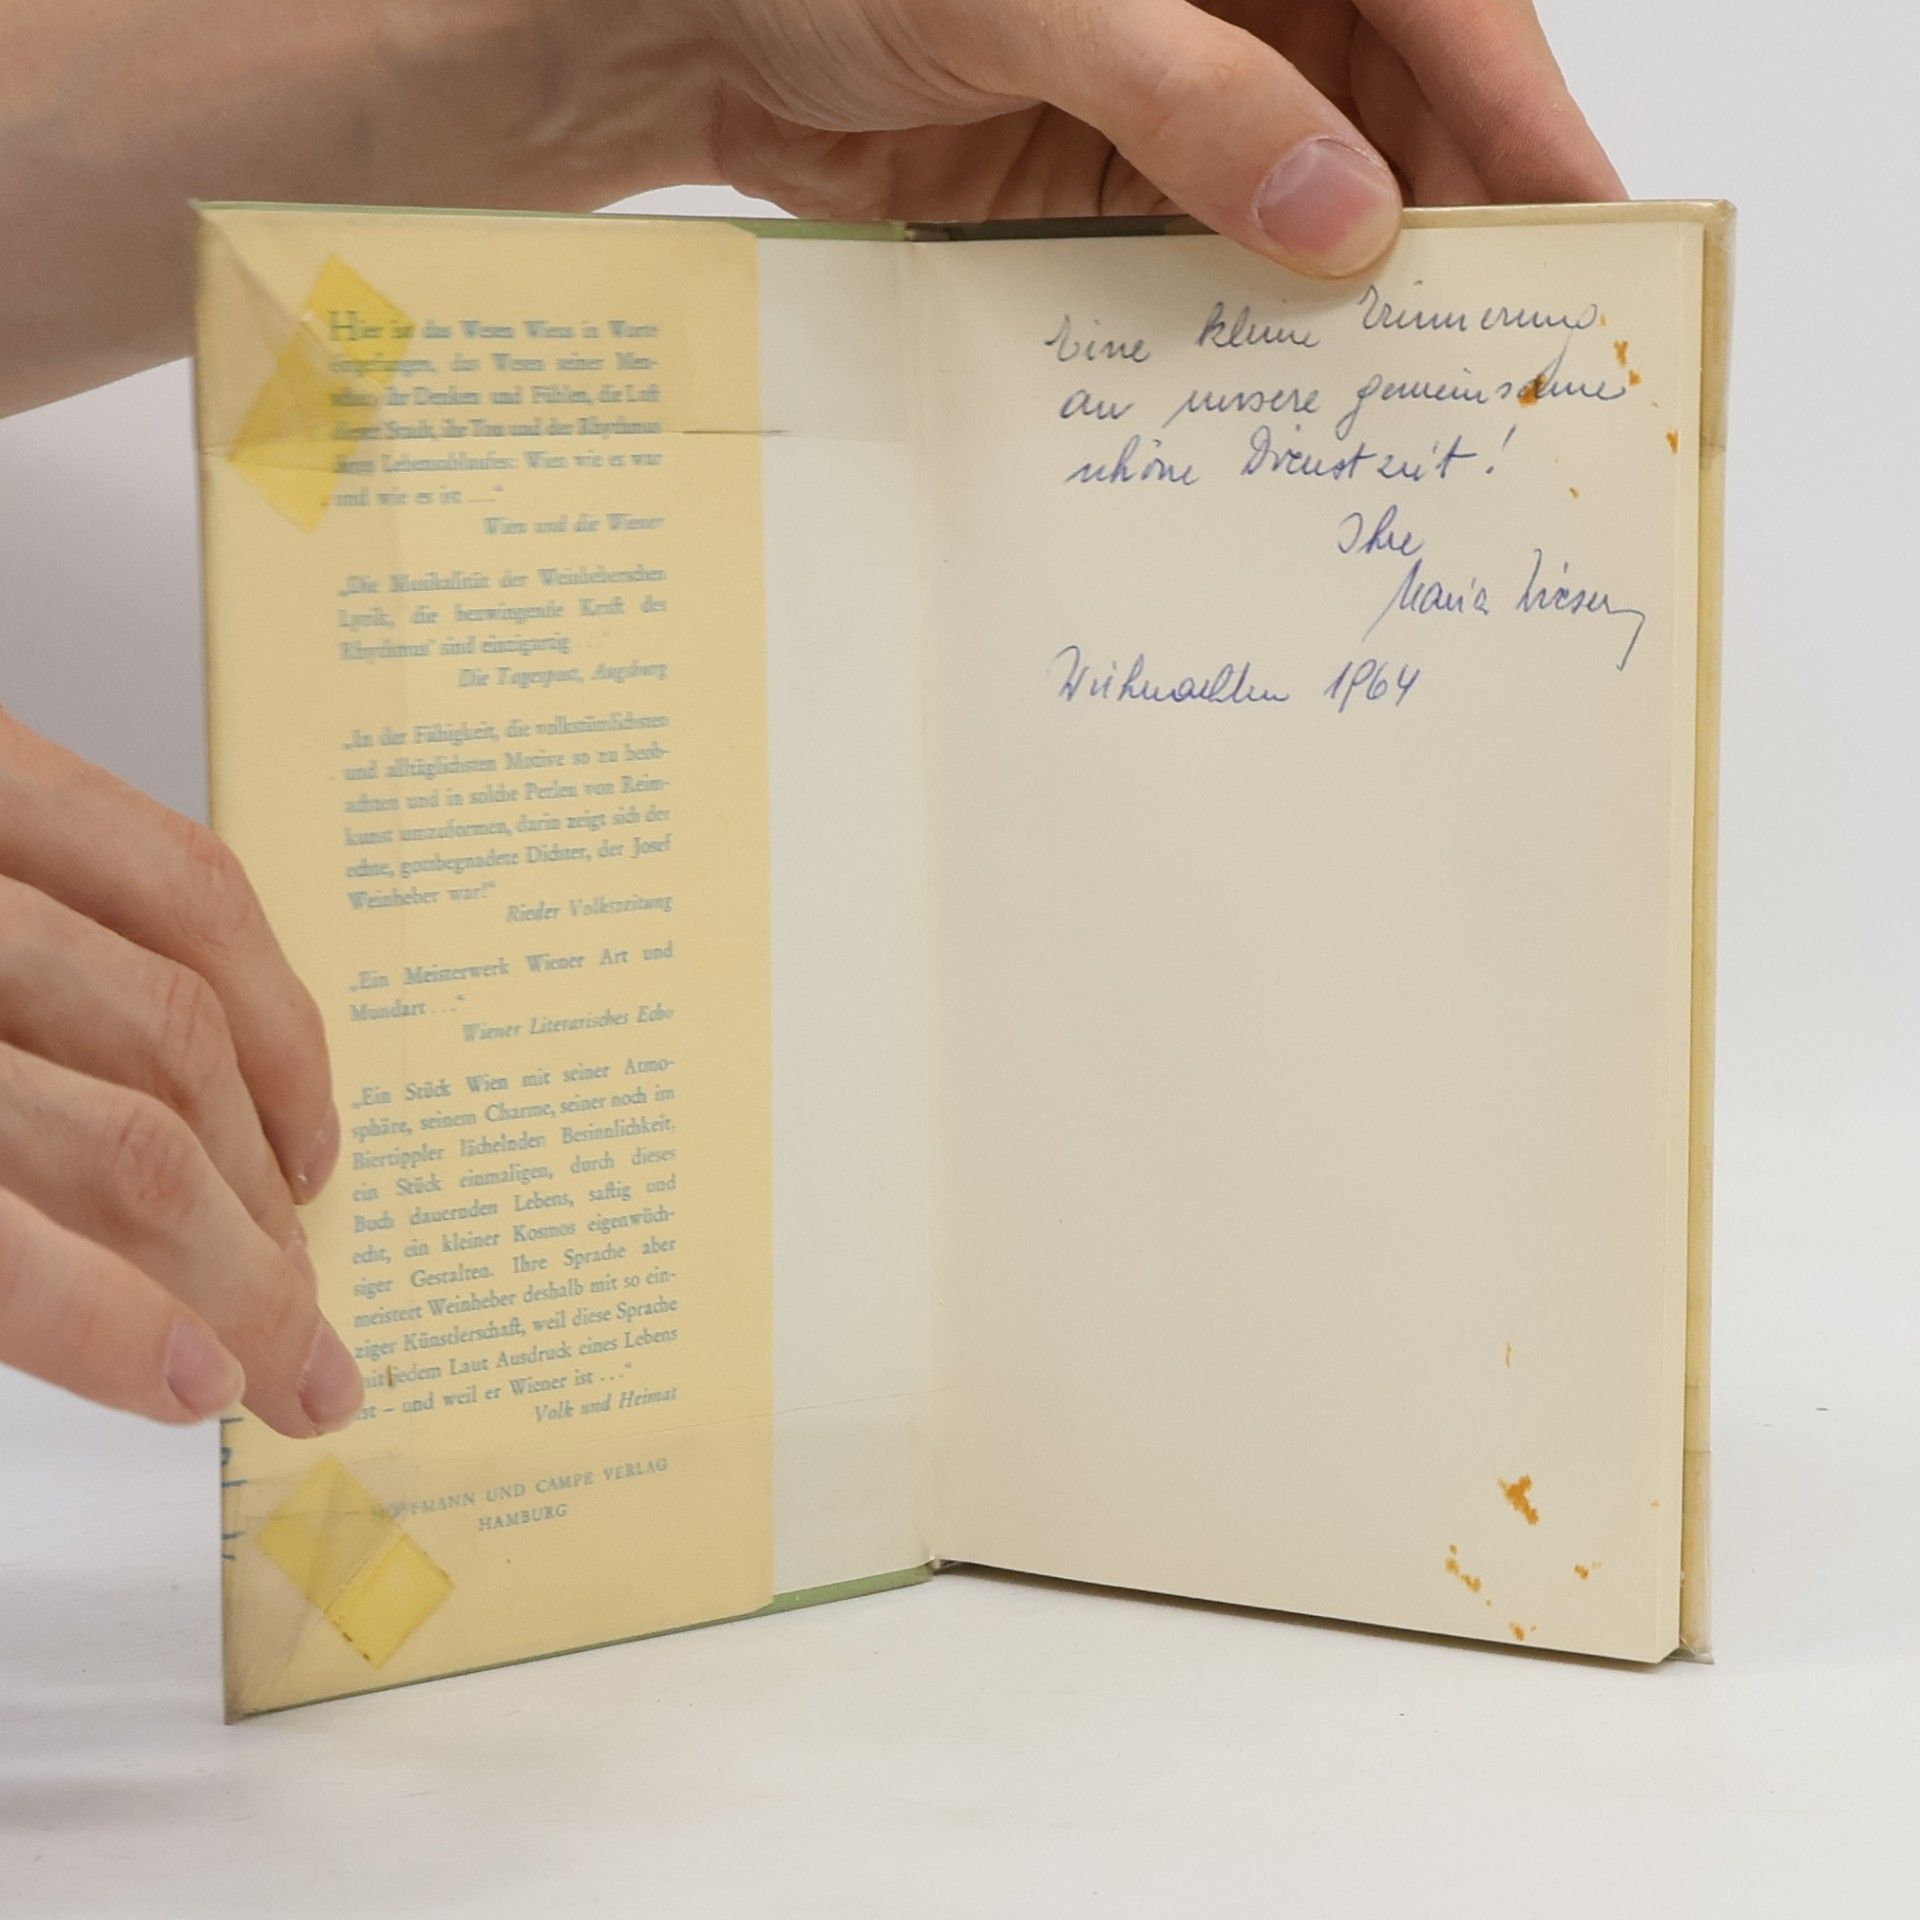 Hier ist das Wesen Wiens in Worte
eingefangen, das Wesen seiner Men-
schen, ihr Denken und Fühlen, die Luft
dieser Stadt, ihr Ton und der Rhythmus
ihres Lebensablaufes: Wien wie es war
und wie es ist ...."
Wien und die Wiener
„Die Musikalität der Weinheberschen
Lyrik, die bezwingende Kraft des
Rhythmus' sind einzigartig
Die Tagespost, Augsburg
„In der Fähigkeit, die volkstümlichsten
und alltäglichsten Motive so zu beob-
achten und in solche Perlen von Reim-
kunst umzuformen, darin zeigt sich der
echte, gottbegnadete Dichter, der Josef
Weinheber war!"
Rieder Volkszeitung
„Ein Meisterwerk Wiener Art und
Mundart ..."
Wiener Literarisches Echo
„Ein Stück Wien mit seiner Atmo-
sphäre, seinem Charme, seiner noch im
Biertippler lächelnden Besinnlichkeit,
ein Stück einmaligen, durch dieses
Buch dauernden Lebens, saftig und
echt, ein kleiner Kosmos eigenwüch-
siger Gestalten. Ihre Sprache aber
meistert Weinheber deshalb mit so ein-
ziger Künstlerschaft, weil diese Sprache
mit jedem Laut Ausdruck eines Lebens
ist – und weil er Wiener ist ..."
Volk und Heimat
HOFFMANN UND CAMPE VERLAG
HAMBURG
Eine kleine Erinnerung
an unsere gemeinsame
schöne Dienstzeit!
Ihre
Maria
Weihnachten 1964